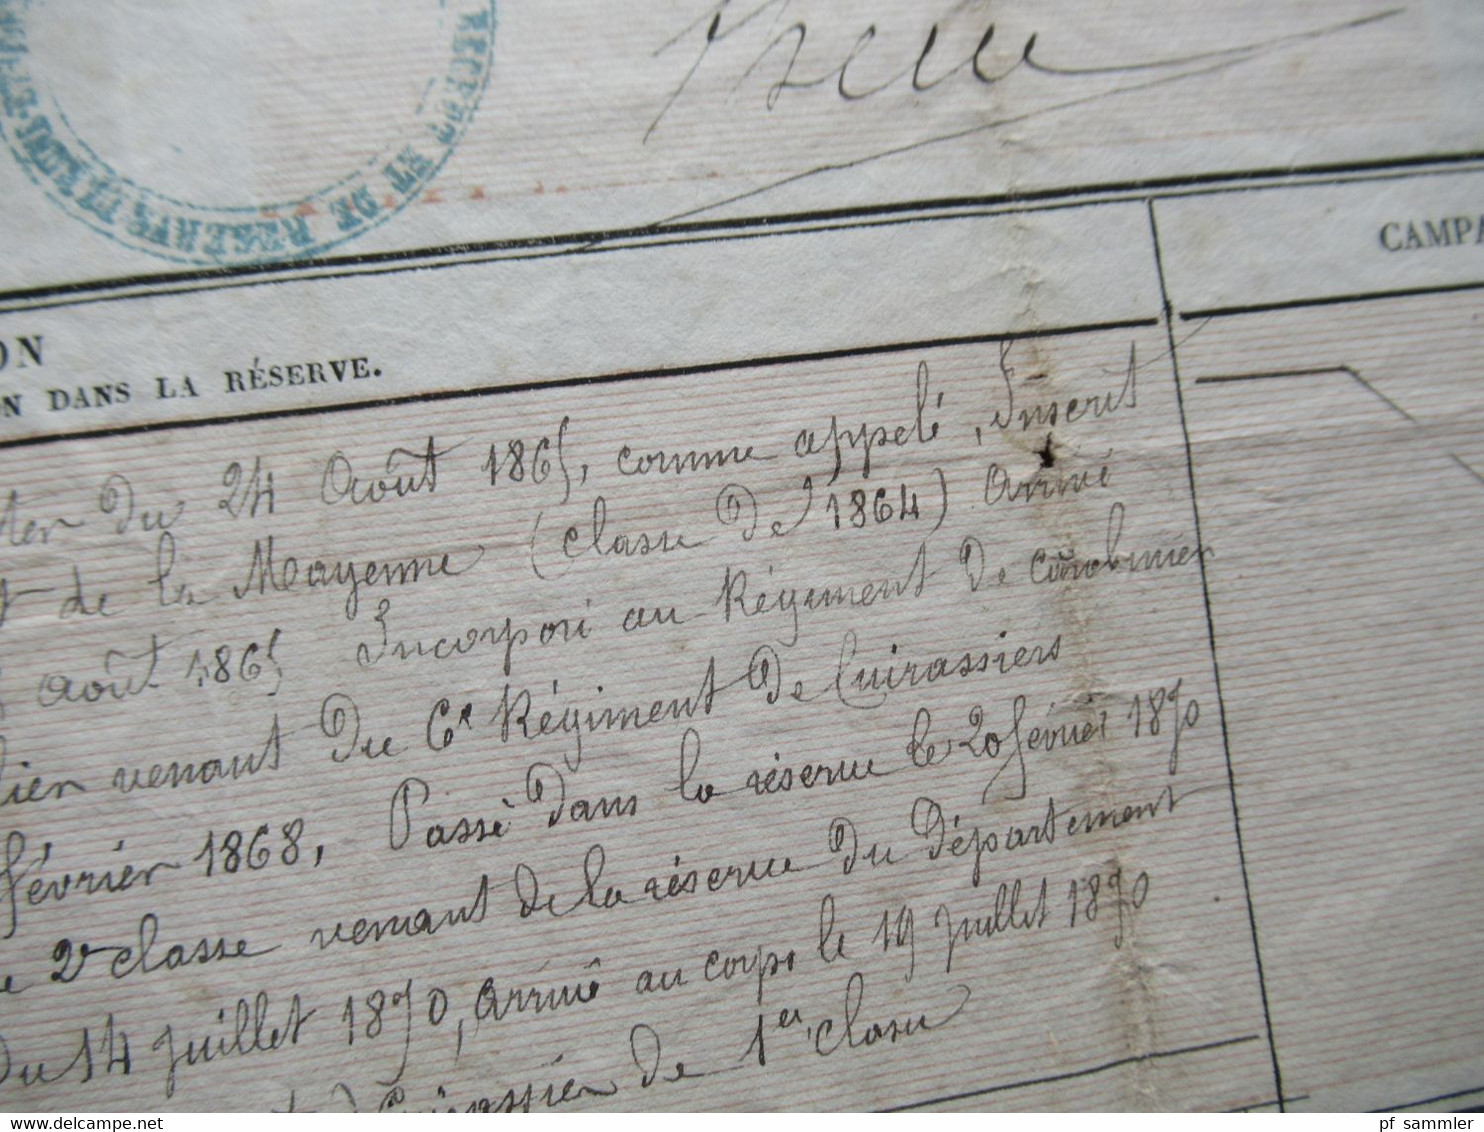 ET DE RÉSERVE
CAMPA
ON
ON DANS LA RÉSERVE.
du 24 Août 1865, comme appelé, Inscrit
de la Mayenne (classe de 1864) Arrivé
août 1865 Incorporé au Régiment de Carabinier
venant du 6e Régiment de Cuirassiers
février 1868, Passé dans la réserve le 20 février 1870
2e classe venant de la réserve du Département
du 14 juillet 1870, Arrivé au corps le 19 juillet 1870
Cuirassier de 1er classe
delcampe.net
pf_sammler